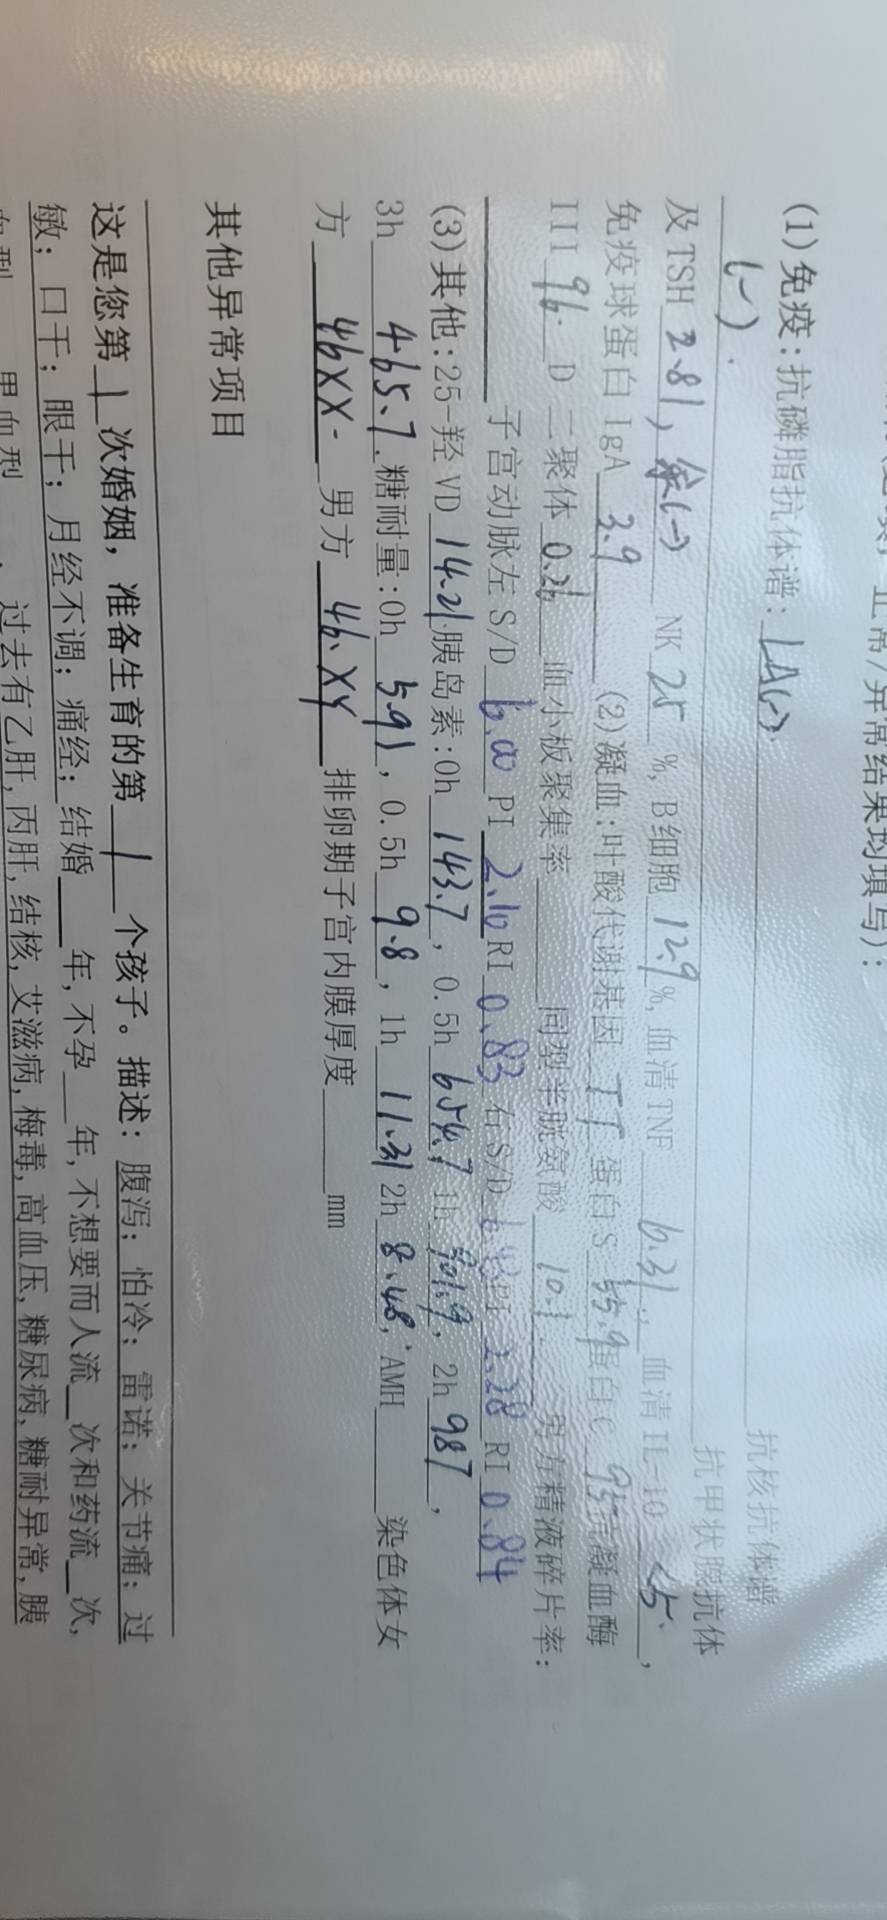 正常/异常结果均填写):
(1)免疫:抗磷脂抗体谱: LA(-) 抗核抗体谱
(-). 抗甲状腺抗体
及TSH 2.81, 余(-) NK 25 %, B细胞 12.9 %, 血清TNF 6.31, 血清IL-10 <5,
免疫球蛋白IgA 3.9 (2)凝血:叶酸代谢基因 TT 蛋白S 55.9 蛋白C 95 抗凝血酶
III 96. D 二聚体 0.26 血小板聚集率 同型半胱氨酸 10.1 男方精液碎片率:
子宫动脉左S/D 6.00 PI 2.10 RI 0.83 右S/D PI 2.28 RI 0.84
(3)其他:25-羟VD 14.21 胰岛素:0h 143.7, 0.5h 654.7 1h, 2h 987,
3h 465.7 糖耐量:0h 5.91, 0.5h 9.8, 1h 11.31 2h 8.48, AMH 染色体女
方 46XX- 男方 46.XY 排卵期子宫内膜厚度 mm
其他异常项目
这是您第 1 次婚姻，准备生育的第 1 个孩子。描述：腹泻；怕冷；雷诺；关节痛；过
敏；口干；眼干；月经不调；痛经；结婚 年,不孕 年,不想要而人流 次和药流 次,
过去有乙肝,丙肝,结核,艾滋病,梅毒,高血压,糖尿病,糖耐异常,胰